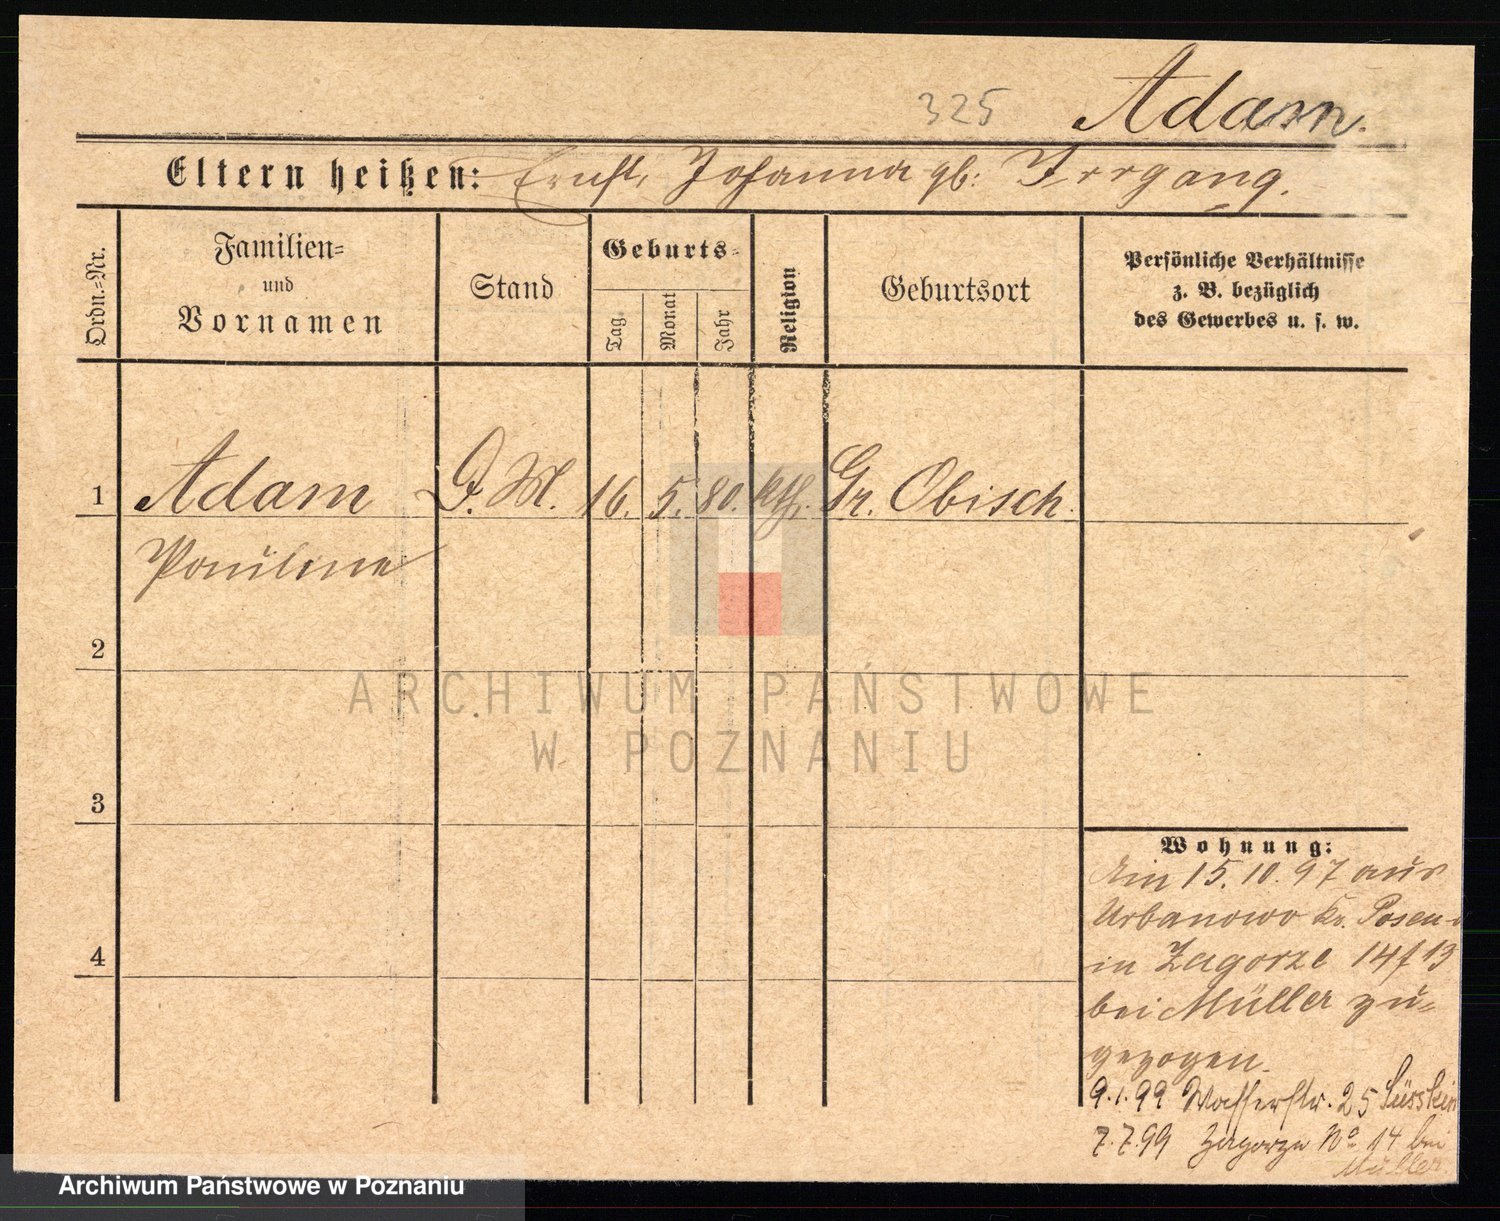 325 Adam.
Eltern heißen: Ernst, Johanna gb: Irrgang.
Ordn.-Nr.
Familien-
und
Vornamen
Stand
Geburts-
Tag
Monat
Jahr
Religion
Geburtsort
Persönliche Verhältnisse
z. B. bezüglich
des Gewerbes u. s. w.
1 Adam D. M. 16. 5. 80. kth. Gr. Obisch.
Pauline
2
ARCHIWUM PAŃSTWOWE
W POZNANIU
3
4
Wohnung:
Am 15.10.97 aus
Urbanowo Kr. Posen
in Zagorze 14/13
bei Müller zu-
gezogen.
9.1.99 Wasserstr. 25 Süsskin
7.7.99 Zagorze No 14 bei
Müller.
Archiwum Państwowe w Poznaniu